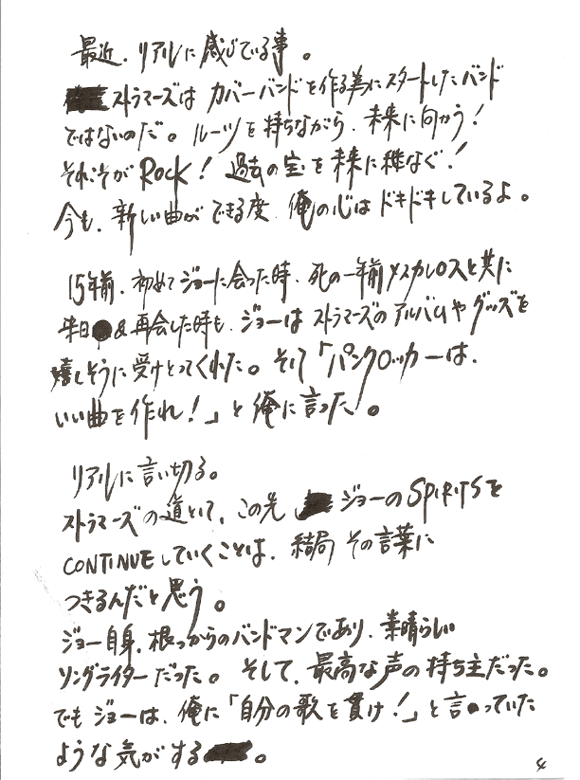 最近、リアルに感じている事。
ストラマーズは カバーバンドを作る為にスタートしたバンド
ではないのだ。ルーツを持ちながら、未来に向かう！
それこそがROCK！ 過去の宝を未来に継なぐ！
今も、新しい曲ができる度、俺の心はドキドキしているよ。
15年前、初めてジョーに会った時、死の一年前メスカレロスと共に
来日&再会した時も、ジョーはストラマーズのアルバムやグッズを
嬉しそうに受けとってくれた。そして「パンクロッカーは、
いい曲を作れ！」と俺に言った。
リアルに言い切る。
ストラマーズの道として、この先 ジョーのSPIRITSを
CONTINUEしていくことは、結局 その言葉に
つきるんだと思う。
ジョー自身、根っからのバンドマンであり、素晴らしい
ソングライターだった。そして、最高な声の持ち主だった。
でもジョーは、俺に「自分の歌を貫け！」と言っていた
ような気がする。
4